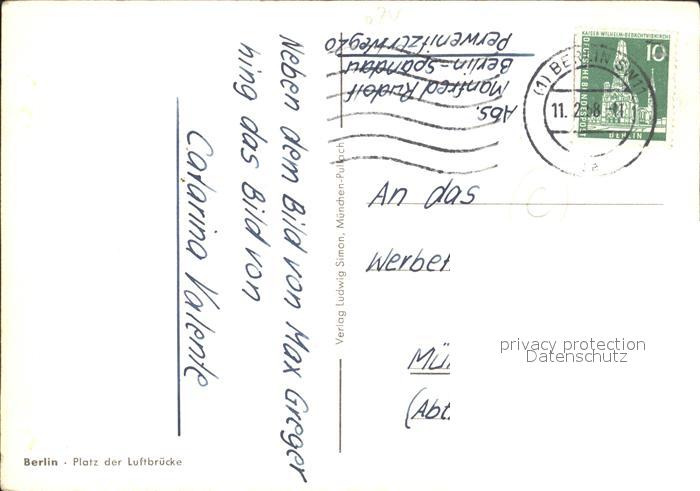 Neben dem Bild von Max Greger
hing das Bild von
Catarina Valente
Abs.
Manfred Rudolf
Berlin-Spandau
Perwenitzerweg 20
KAISER-WILHELM-GEDÄCHTNISKIRCHE
10
DEUTSCHE BUNDESPOST
BERLIN
(1) BERLIN SW 11
11. 2. 58
An das
Werbe
Mü
(Abt.
privacy protection
Datenschutz
Verlag Ludwig Simon, München-Pullach
Berlin · Platz der Luftbrücke